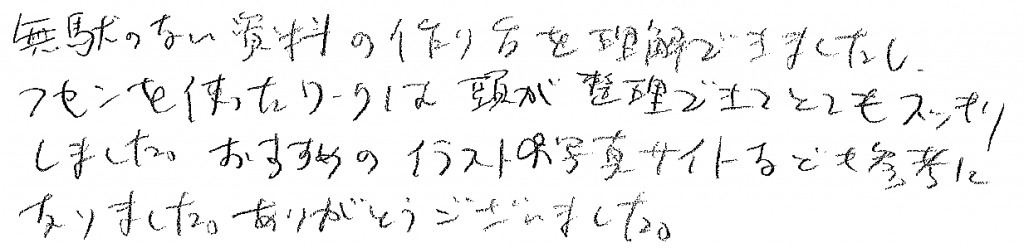 無駄のない資料の作り方を理解できましたし、
フセンを使ったワークは頭が整理できてとてもスッキリ
しました。おすすめのイラストや写真サイトなども参考に
なりました。ありがとうございました。